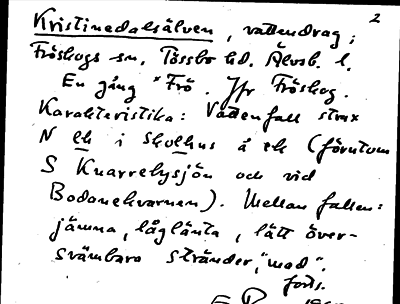 2
Kristinedalsälven, vattendrag;
Fröskogs sn, Tössbo hd. Älvsb. l.
En gång *Frö. Jfr Fröskog.
Karakteristika: Vattenfall strax
N ek i Skolhus å ek (förutom
S Knarrebysjön och vid
Bodanekvarnen). Mellan fallen:
jämna, låglänta, lätt över-
svämbara stränder, "mad".
forts.